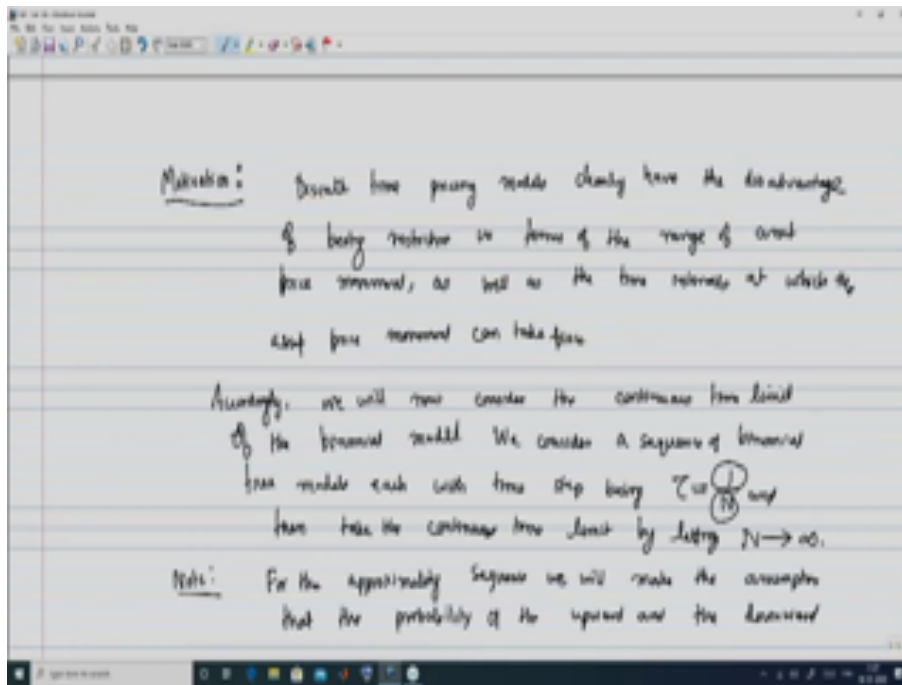 Motivation: Discrete time pricing models clearly have the disadvantage
of being restrictive in terms of the range of asset
price movement, as well as the time intervals at which the
asset price movement can take place
Accordingly, we will now consider the continuous time limit
of the binomial model We consider a sequence of binomial
tree models each with time step being τ = 1/N and
then take the continuous time limit by letting N → ∞.
Note: For the approximating sequence we will make the assumption
that the probability of the upward and the downward